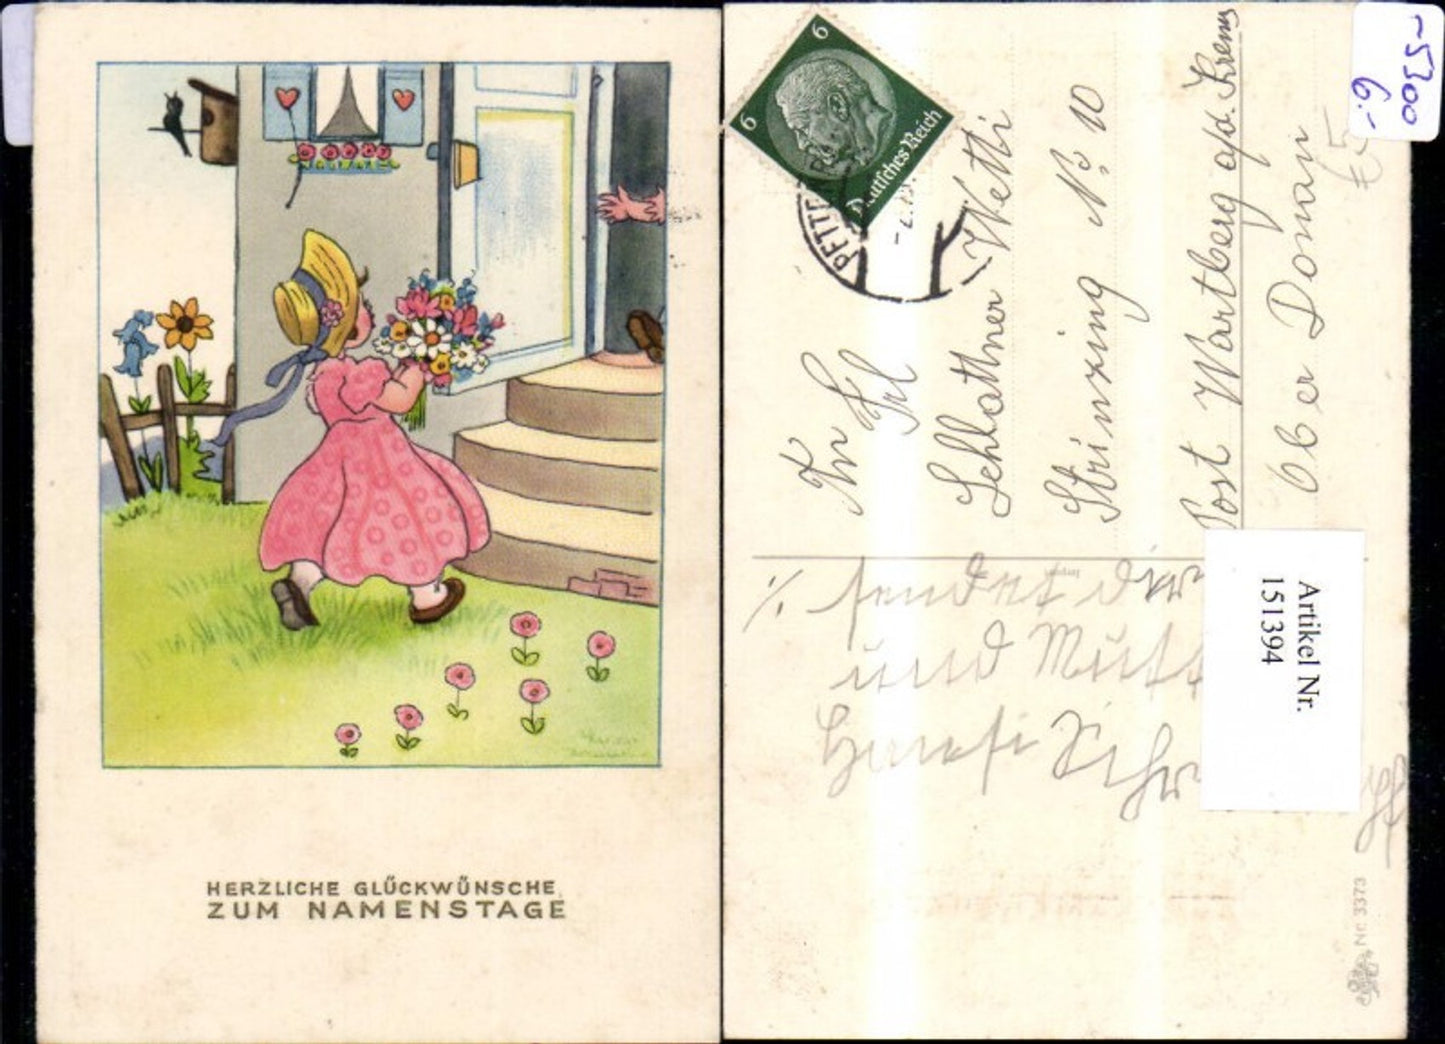 HERZLICHE GLÜCKWÜNSCHE
ZUM NAMENSTAGE
6
6
Deutsches Reich
An Frl
Schlathner Netti
Strinxing No 10
Post Wartberg a/d. Krems
Ober Donau
sendet dir
und Mutt
Artikel Nr.
151394
Nr. 3373
-5300
6.-
€5